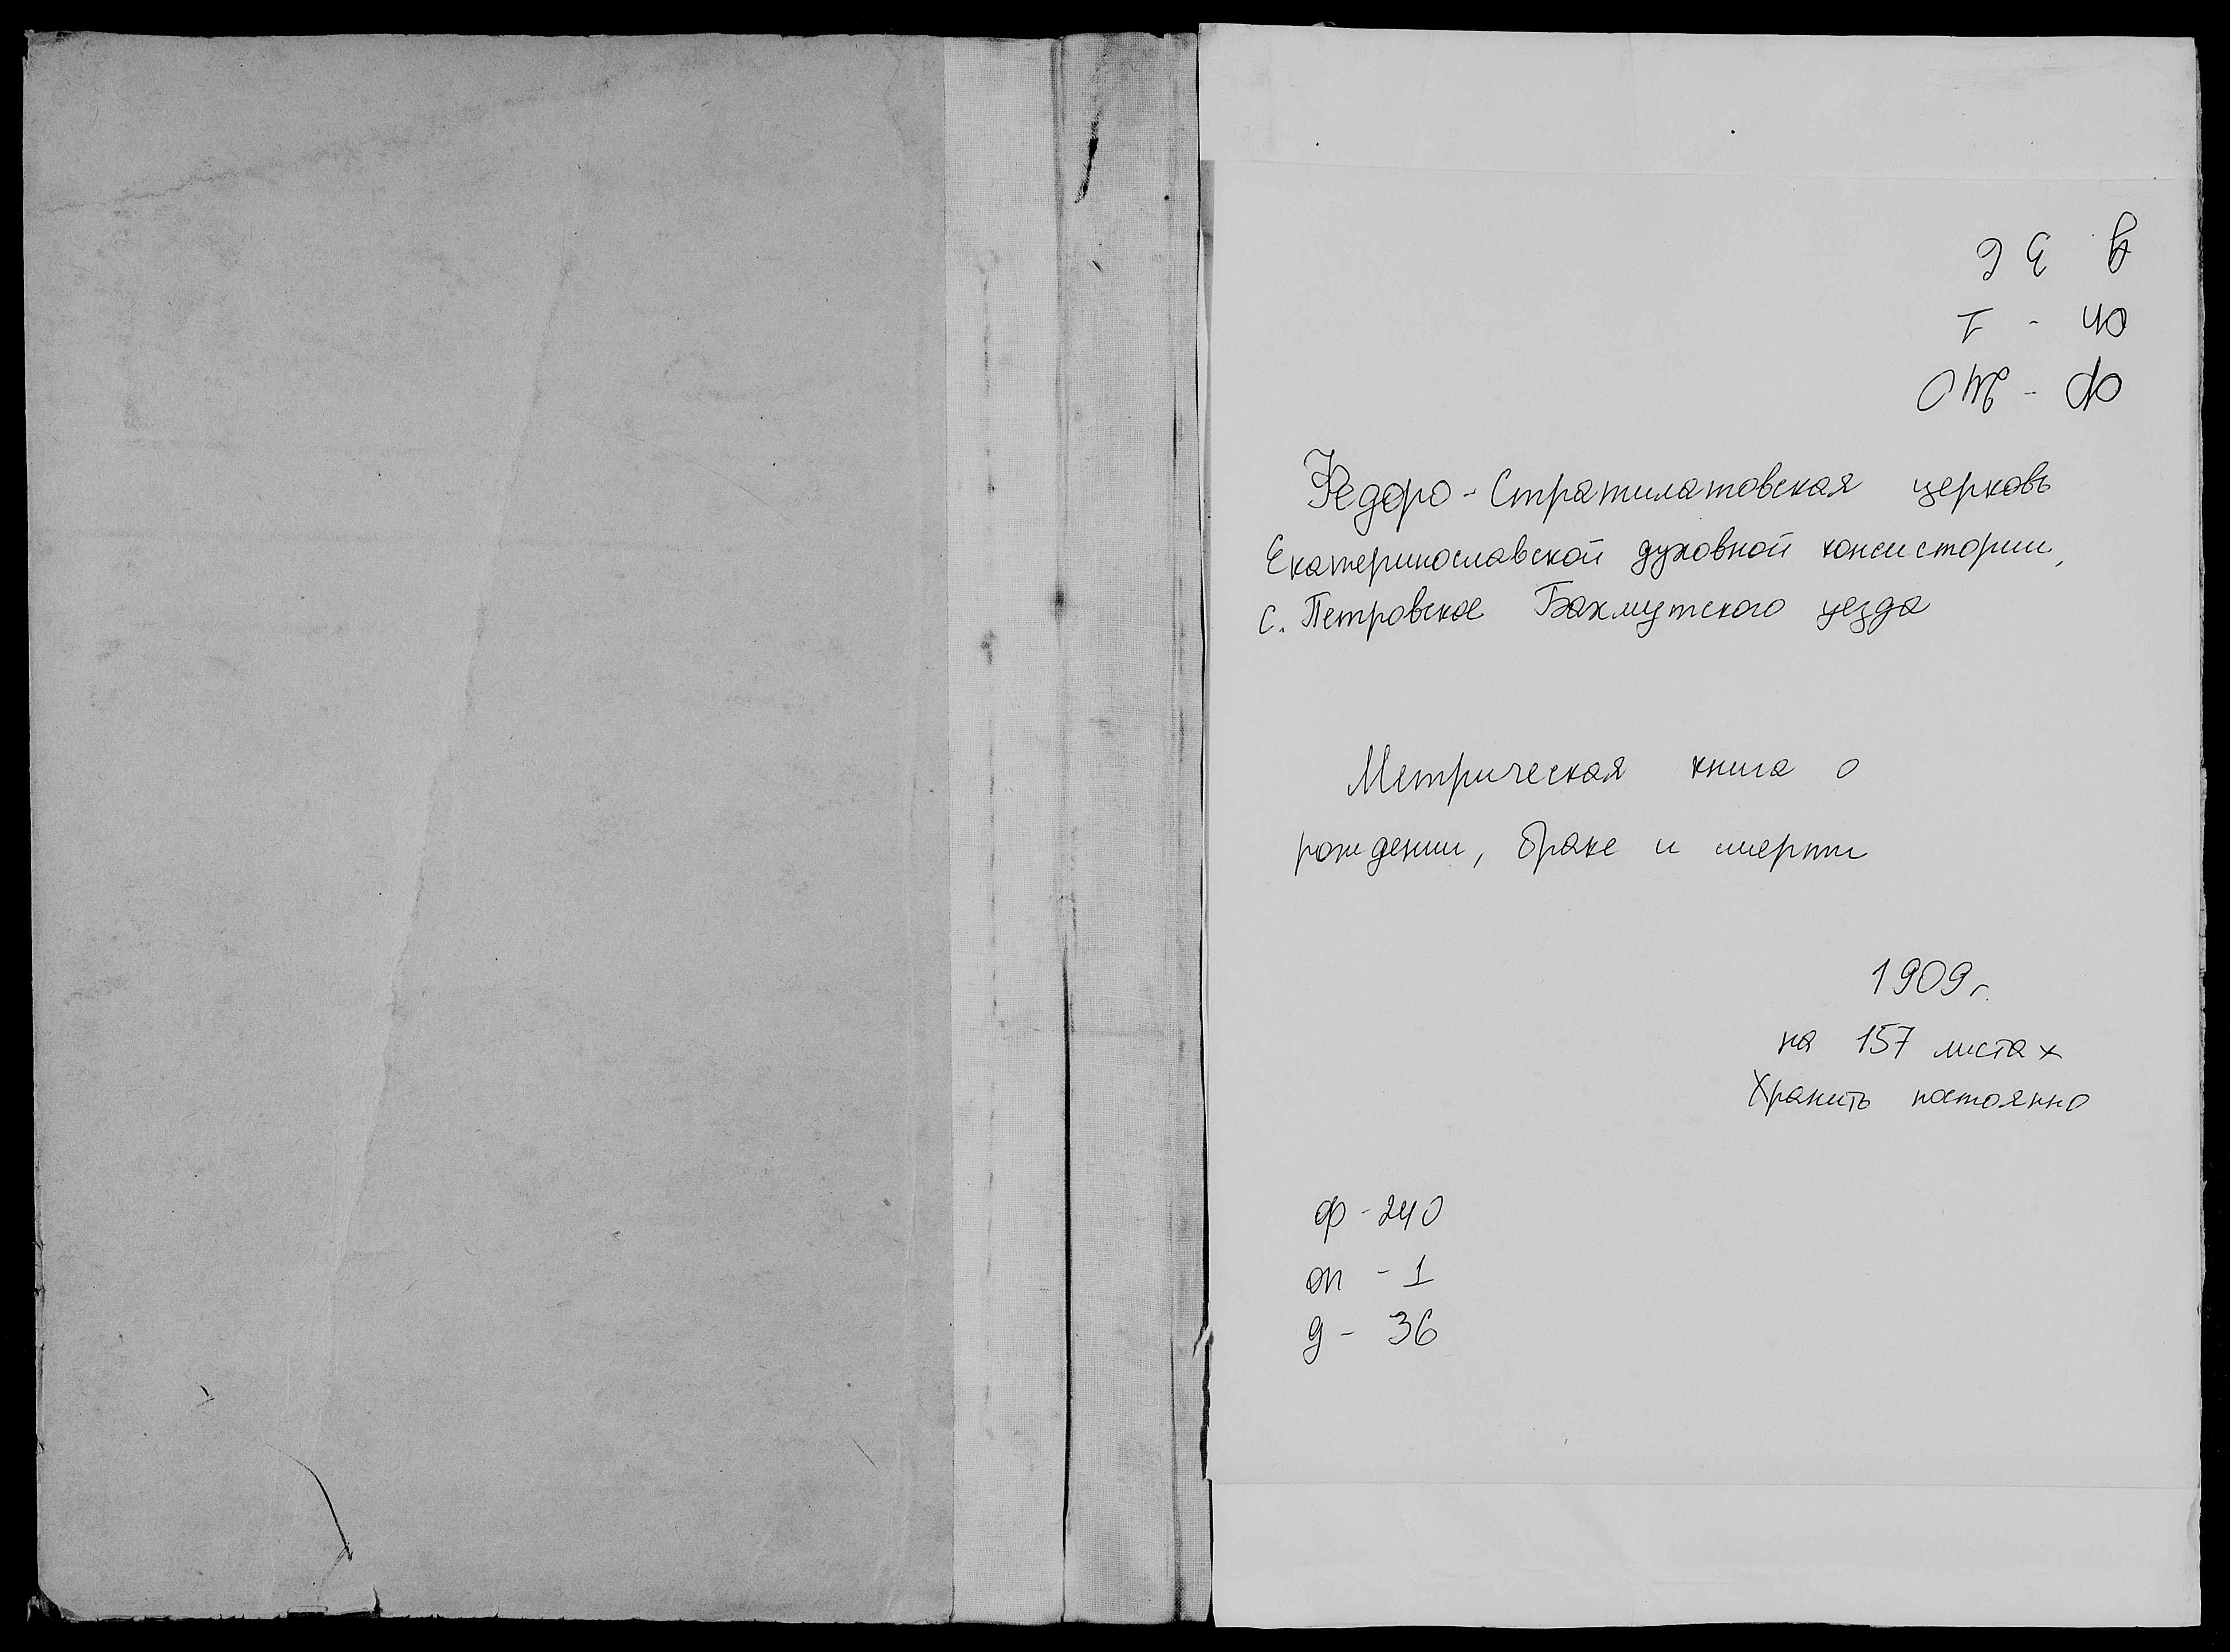 Ф - 240
оп - 1
д 36
Федоро - Стратилатовская церковь
Екатеринославской духовной консистории,
с. Петровское Бахмутского уезда
Метрическая книга о
рождении, браке и смерти
1909 г.
на 157 листах
Хранить постоянно
ф - 240
оп - 1
д - 36